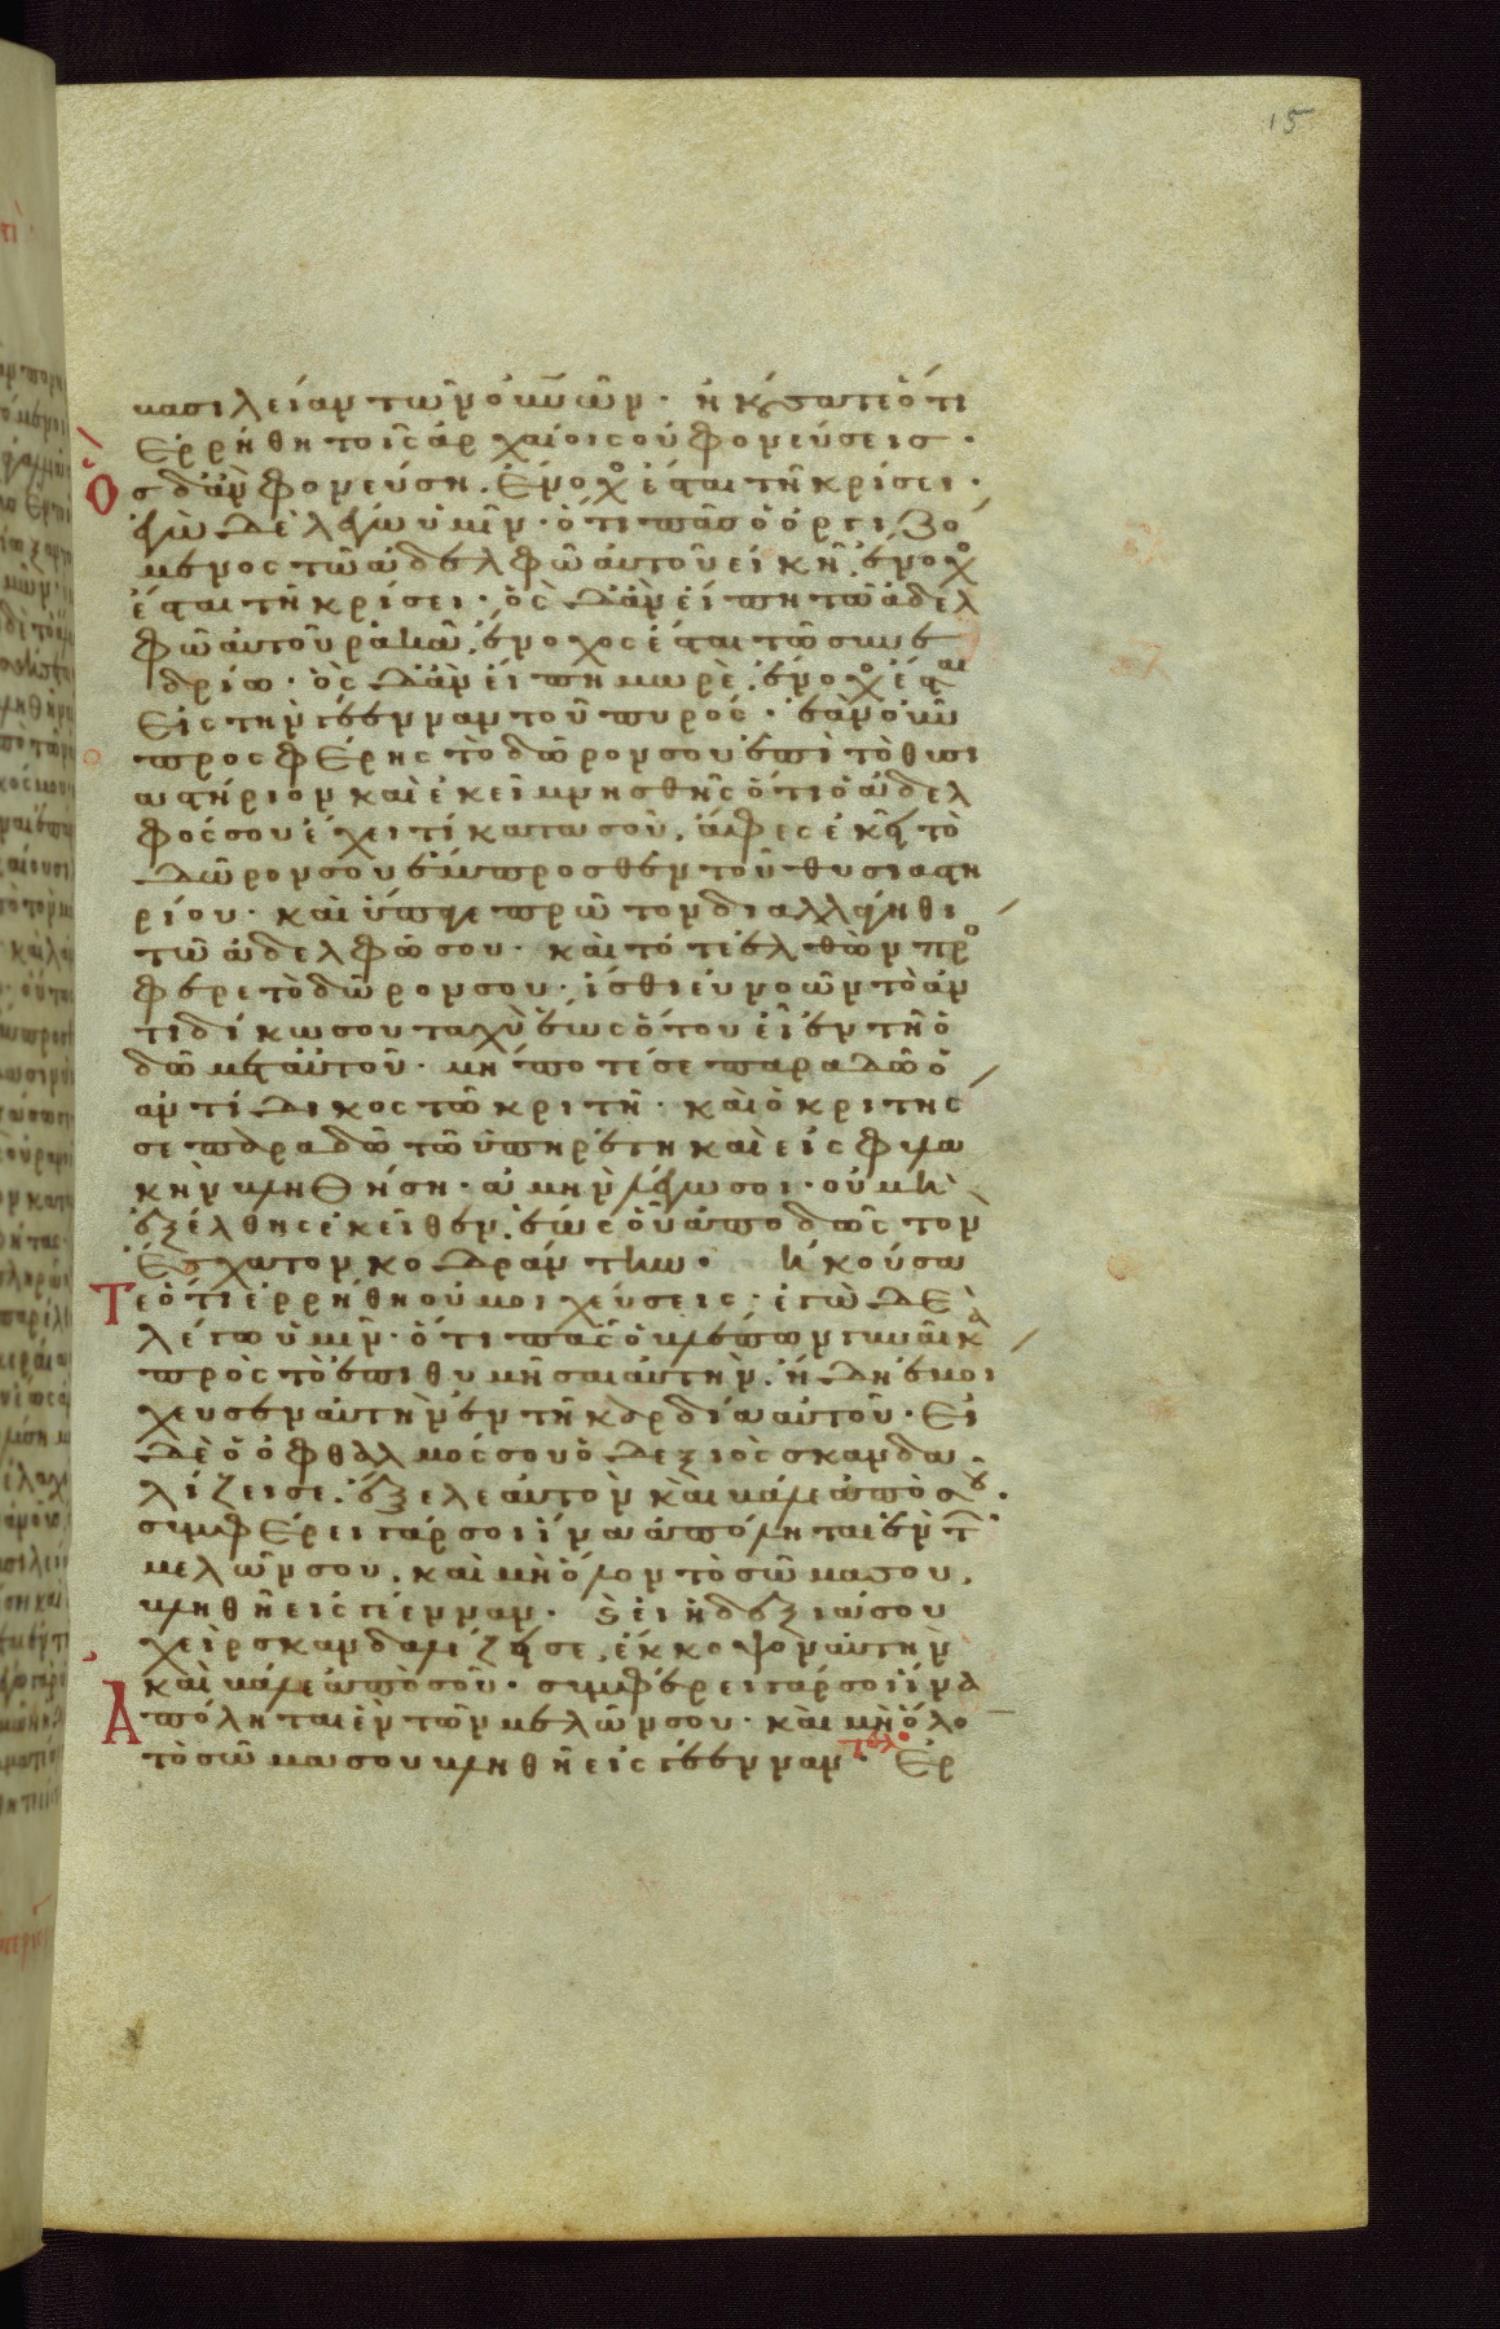 15
βασιλείαν τῶν οὐνῶν · ἠκούσατε ὅτι
ἐρρήθη τοῖς ἀρχαίοις οὐ φονεύσεις ·
Ὃς δ' ἂν φονεύση . ἔνοχο ἔσται τῆ κρίσει ·
ἐγὼ δὲ λέγω ὑμῖν · ὅτι πᾶσ ὁ ὀργιζό
μενος τῶ ἀδελφῶ αὐτοῦ εἰκῆ . ἔνοχο
ἔσται τῆ κρίσει · ὃς δ' ἂν εἴπη τῶ ἀδελ
φῶ αὐτοῦ ρακὰ , ἔνοχος ἔσται τῶ συνε
δρίω · ὃς δ' ἂν εἴπη μωρὲ . ἔνοχο ἔσται
εἰς τὴν γέενναν τοῦ πυρός · ἐὰν οὖν
προσφέρης τὸ δῶρον σου ἐπὶ τὸ θυσι
αστήριον καὶ ἐκεῖ μνησθῆς ὅτι ὁ ἀδελ
φός σου ἔχει τί κατα σοῦ . ἄφες ἐκεῖ τὸ
δῶρον σου ἔμπροσθεν τοῦ θυσιαστη
ρίου · καὶ ὕπαγε πρῶτον διαλλάγηθι
τῶ ἀδελφῶ σου · καὶ τότε ἐλθὼν προ
φερε τὸ δῶρον σου · ἴσθι εὐνοῶν τὸ ἀν
τιδίκω σου ταχὺ ἕως ὅτου εἶ ἐν τῆ ὁ
δῶ μετ αὐτοῦ · μήποτέ σε παραδῶ ὁ
αντίδικος τῶ κριτῆ · καὶ ὁ κριτης
σε παραδῶ τῶ ὑπηρέτη καὶ εἰς φυλα
κὴν βληθήση · ἀμὴν λέγω σοι · οὐ μὴ
ἐξέλθης ἐκεῖθεν . ἕως οὗ ἀποδῶς τον
ἔσχατον κοδράντην · ἠκούσα
Τε ὅτι ἐρρήθη οὐ μοιχεύσεις · ἐγὼ δὲ
λέγω ὑμῖν · ὅτι πᾶς ὁ βλέπων γυναῖκα
πρὸς τὸ ἐπιθυμῆσαι αὐτὴν . ἤδη ἐμοι
χευσεν αὐτὴν ἐν τῆ καρδία αὐτοῦ · εἰ
δὲ ὁ ὀφθαλμός σου ὁ δεξιὸς σκανδα
λίζει σε . ἔξελε αὐτὸν καὶ βάλε ἀπὸ σοῦ .
συμφέρει γάρ σοι ἵνα ἀπόληται ἐν τῶν
μελῶν σου . καὶ μὴ ὅλον τὸ σῶμα σου ,
βληθῆ εἰς γέενναν · καὶ εἰ ἡ δεξιά σου
χεὶρ σκανδαλίζει σε , ἔκκοψον αὐτὴν
καὶ βάλε ἀπὸ σοῦ · συμφέρει γάρ σοι ἵνα
Ἀπόληται ἐν τῶν μελῶν σου · καὶ μὴ ὅλο
τὸ σῶμα σου βληθῆ εἰς γέενναν · τελο Ἐρ